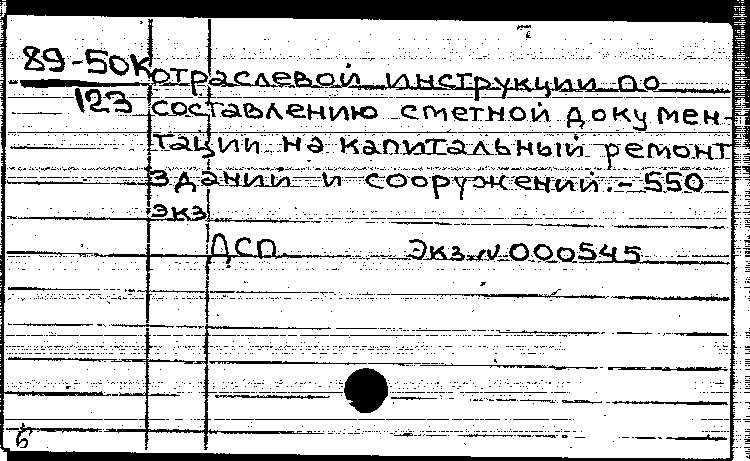 89-50К отраслевой инструкции по
123 составлению сметной докумен-
тации на капитальный ремонт
зданий и сооружений. - 550
экз
ДСП Экз. № 000545
б